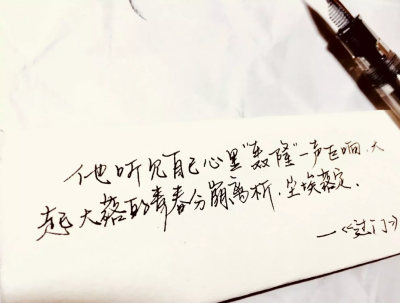 他听见自己心里“轰隆”一声巨响,大
起大落的青春分崩离析,尘埃落定.
—《过门》